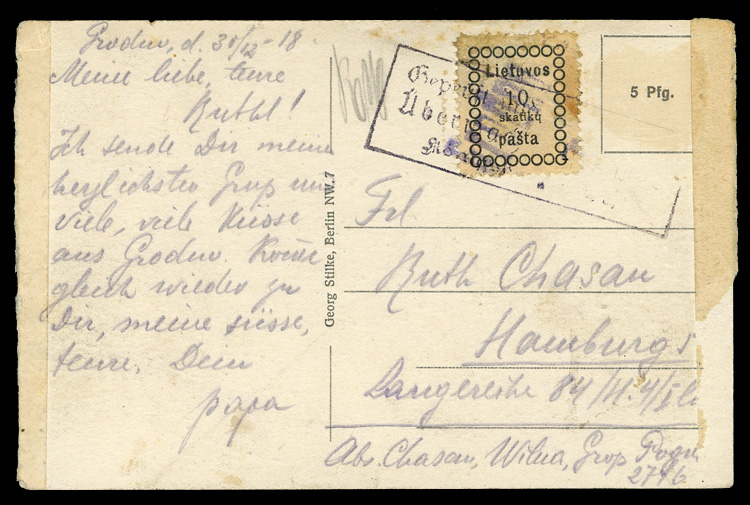 Grodno, d. 30/12-18
Meine liebe, teure
Ruthl!
Ich sende Dir meine
herzlichsten Grup un
viele, viele Küsse
aus Grodno. Komme
gleich wieder zu
Dir, meine süsse,
teure. Dein
papa
Georg Stilke, Berlin NW. 7
Lietuvos
10
skatikų
pašta
5 Pfg.
Frl
Ruth Chasan
Hamburg 5
Langereihe 84/H. 4/
Abs. Chasan, Wilna, Grop Pogu